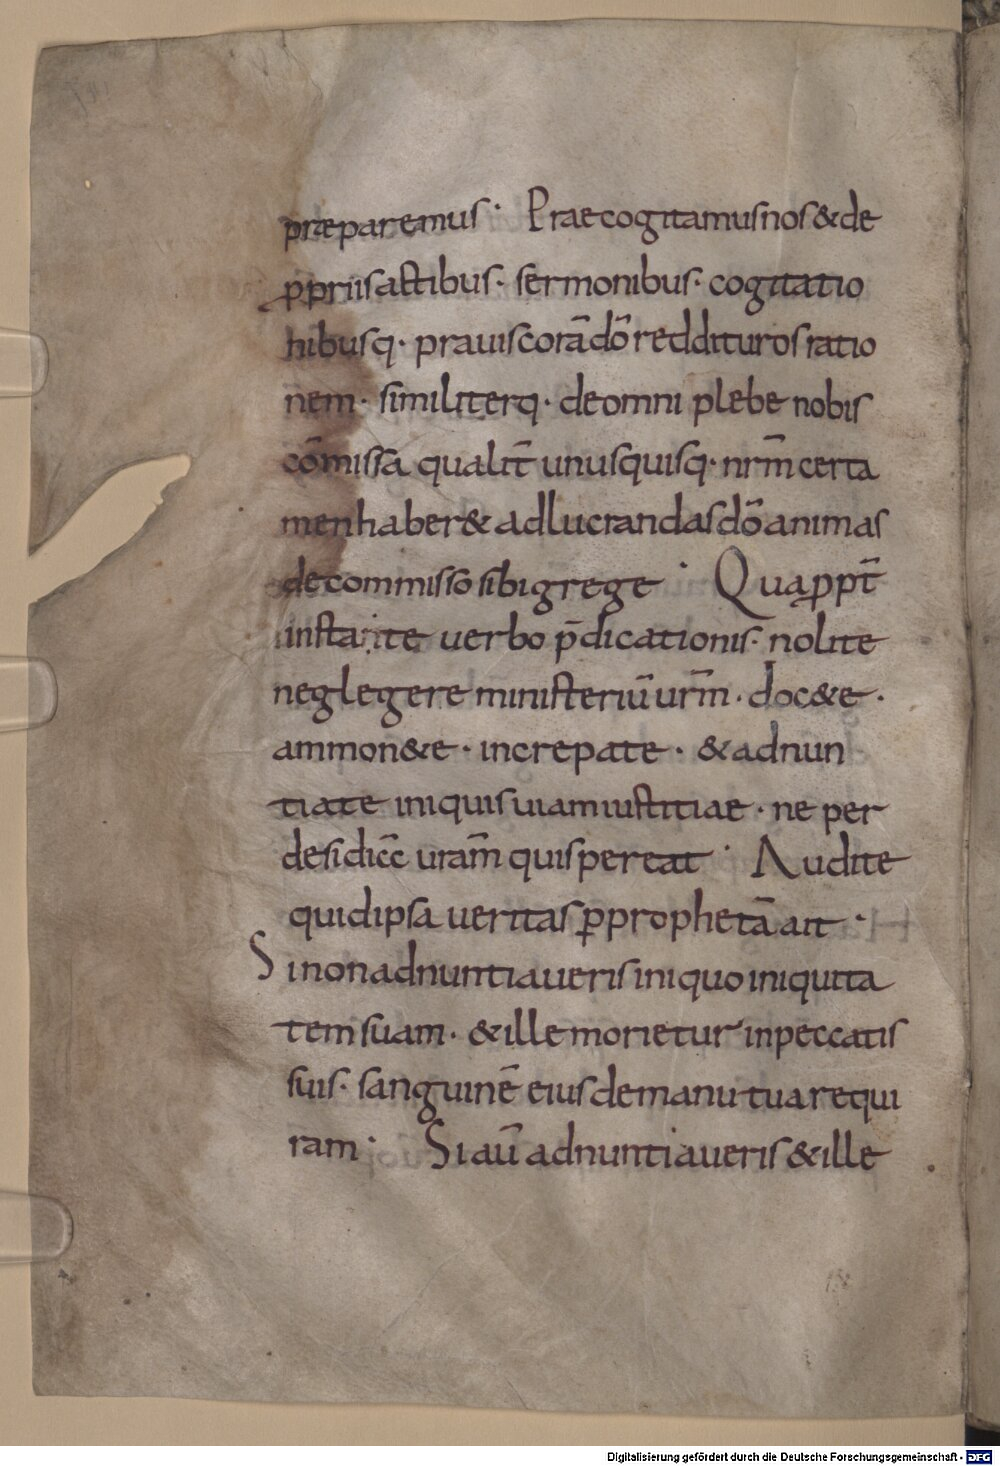 præparemus· Praecogitamus nos & de
ꝓpriis actibus· sermonibus· cogitatio
nibusq· prauis corā dō reddituros ratio
nem· similiterq· de omni plebe nobis
cōmissa qualit̄ unusquisq· nr̄m certa
men haber& ad lucrandas dō animas
de commisso sibi grege· Quaꝓpt̄
instante uerbo p̄dicationis· nolite
neglegere ministeriū ur̄m· doc&e·
ammon&e· increpate· & adnun
tiate iniquis uiam iustitiae· ne per
desidic̄c ura̅m quis pereat· Audite
quid ipsa ueritas ꝑ prophetā ait·
Si non adnuntiaueris iniquo iniquita
tem suam· & ille morietur in peccatis
suis· sanguinē eius de manu tua requi
ram· Si au̅ adnuntiaueris & ille
Digitalisierung gefördert durch die Deutsche Forschungsgemeinschaft - DFG